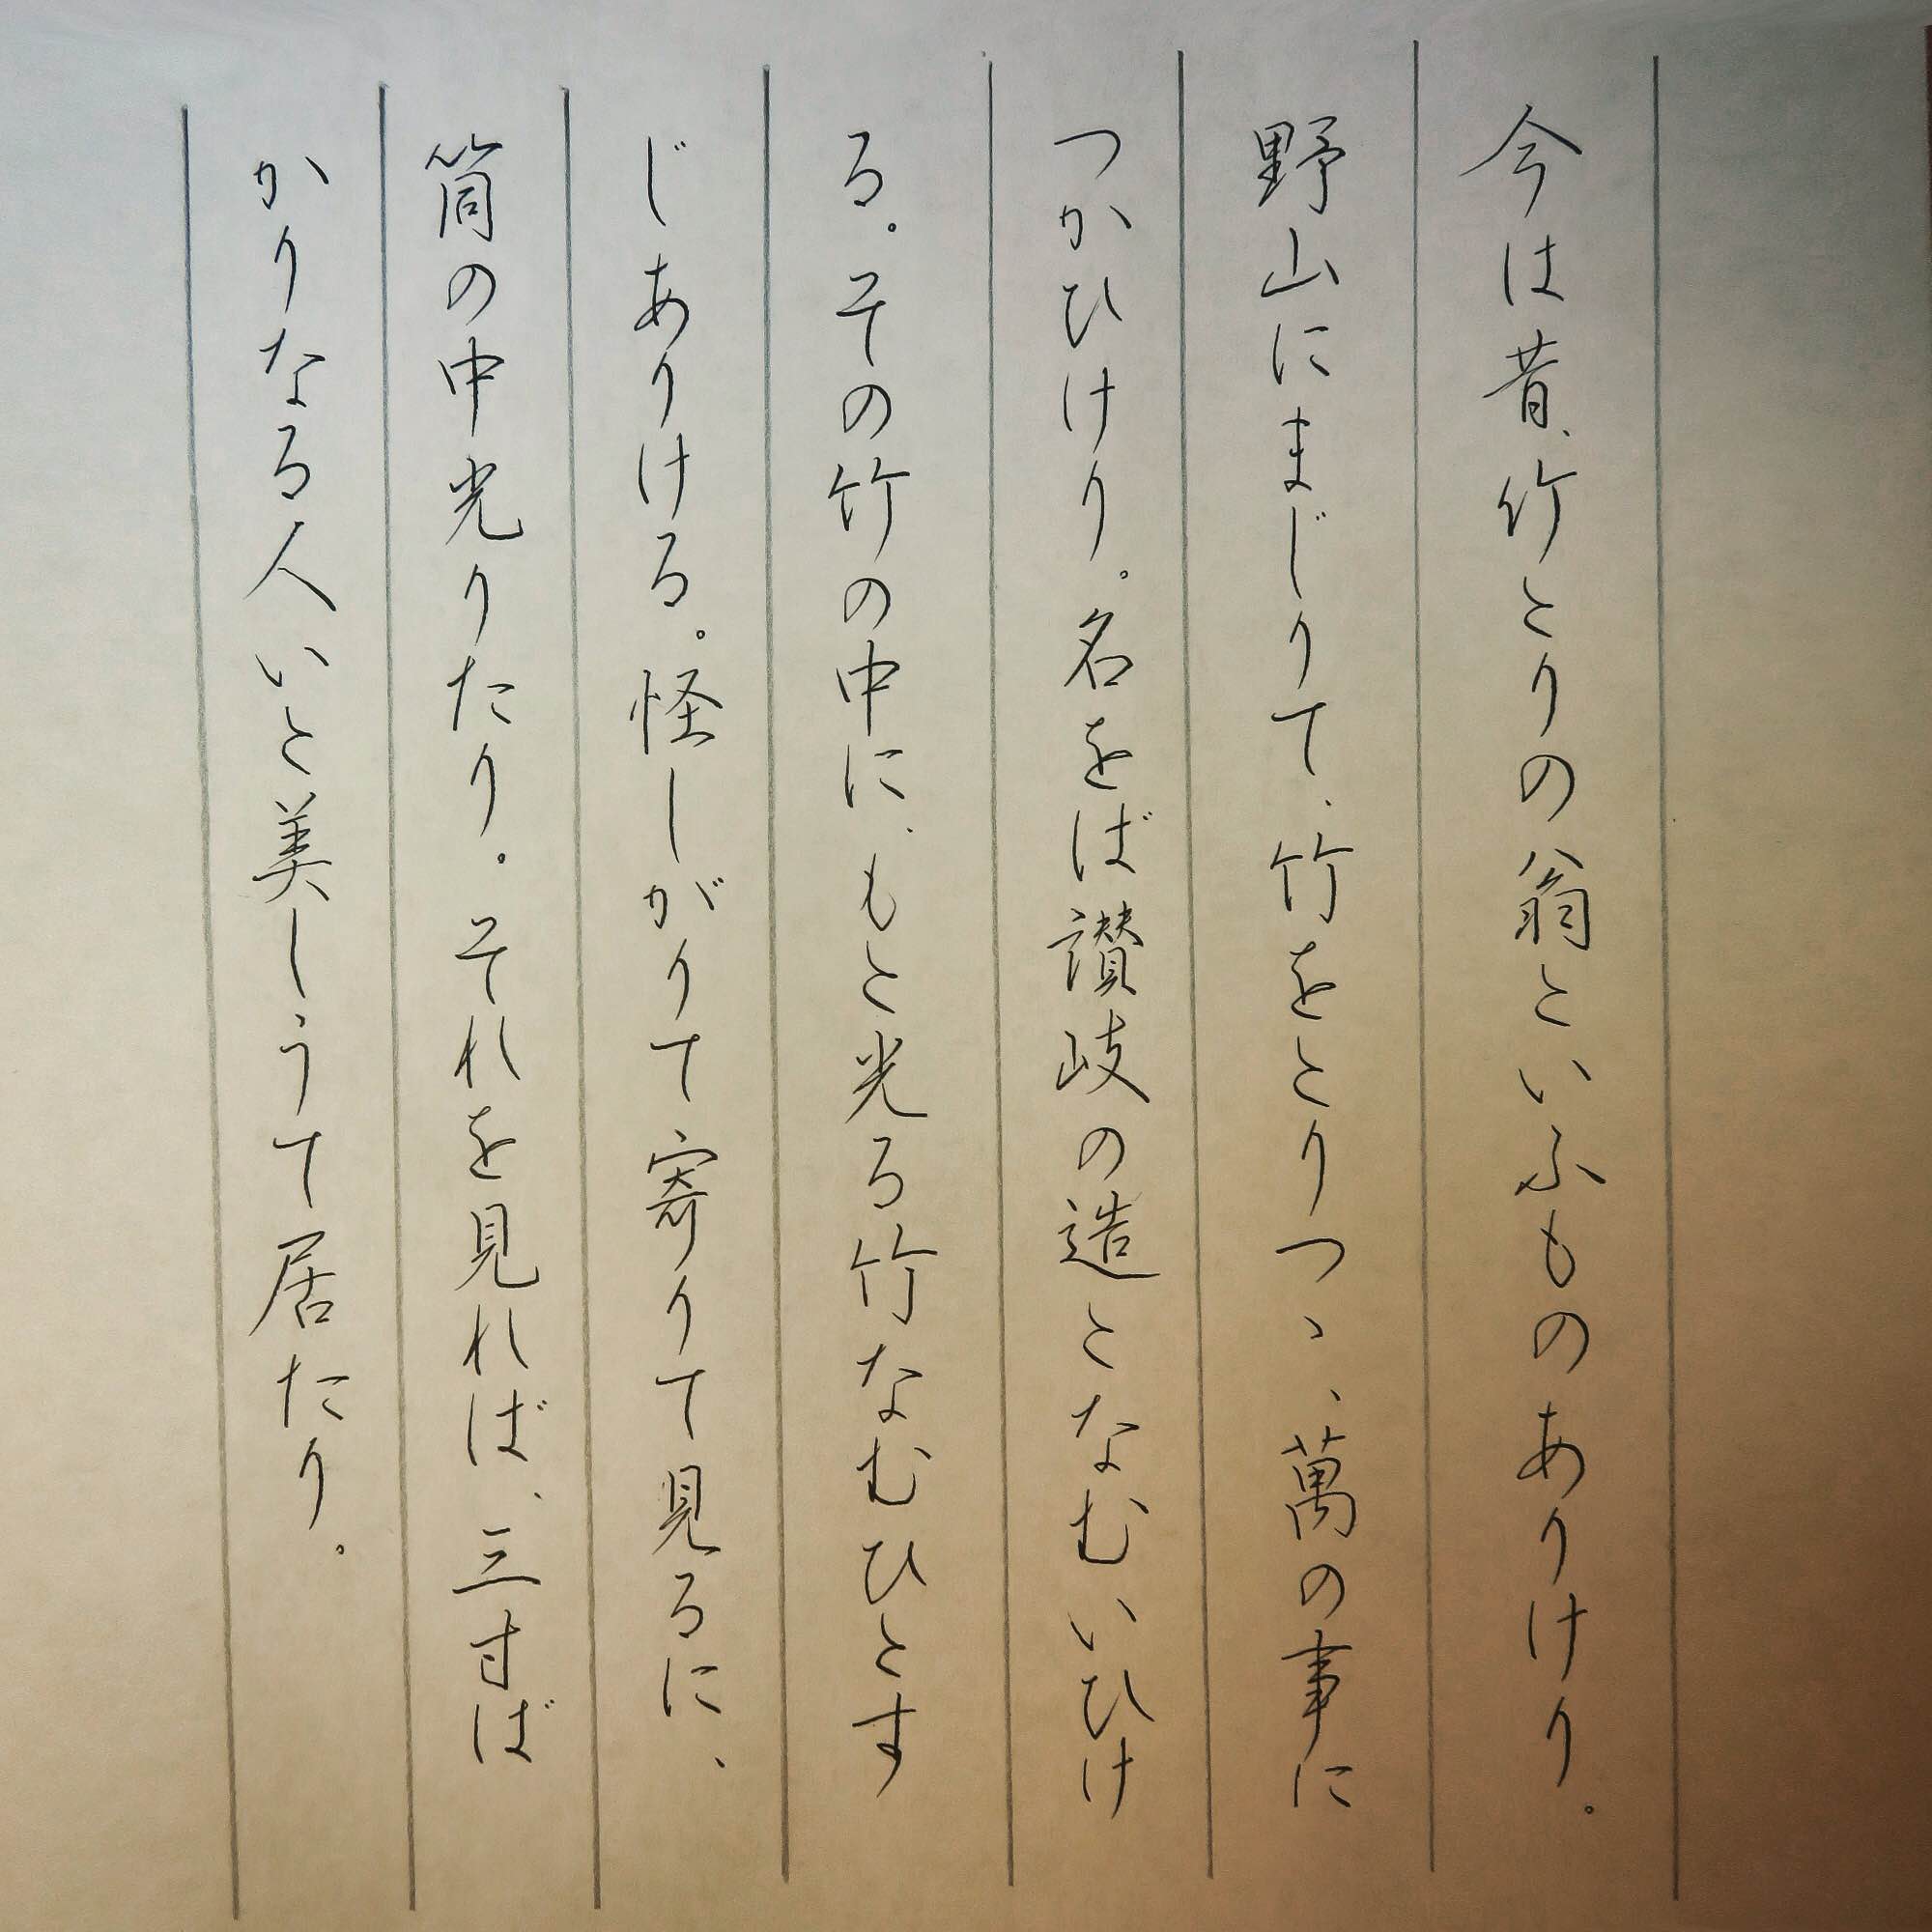 今は昔、竹とりの翁といふものありけり。
野山にまじりて、竹をとりつゝ、萬の事に
つかひけり。名をば讃岐の造となむいひけ
る。その竹の中に、もと光る竹なむひとす
じありける。怪しがりて寄りて見るに、
筒の中光りたり。それを見れば、三寸ば
かりなる人いと美しうて居たり。